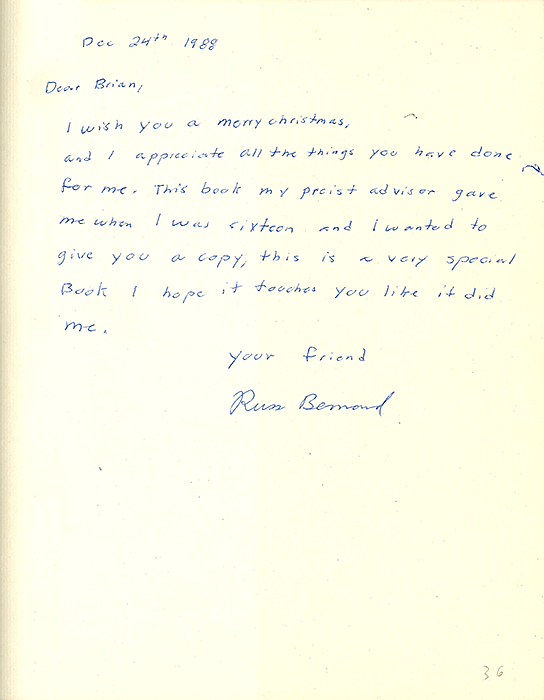 Dec 24th 1988
Dear Brian,
I wish you a merry christmas,
and I appriciate all the things you have done
for me. This book my preist advisor gave
me when I was sixteen and I wanted to
give you a copy, this is a very special
Book I hope it touches you like it did
me.
your friend
Russ Bernard
36